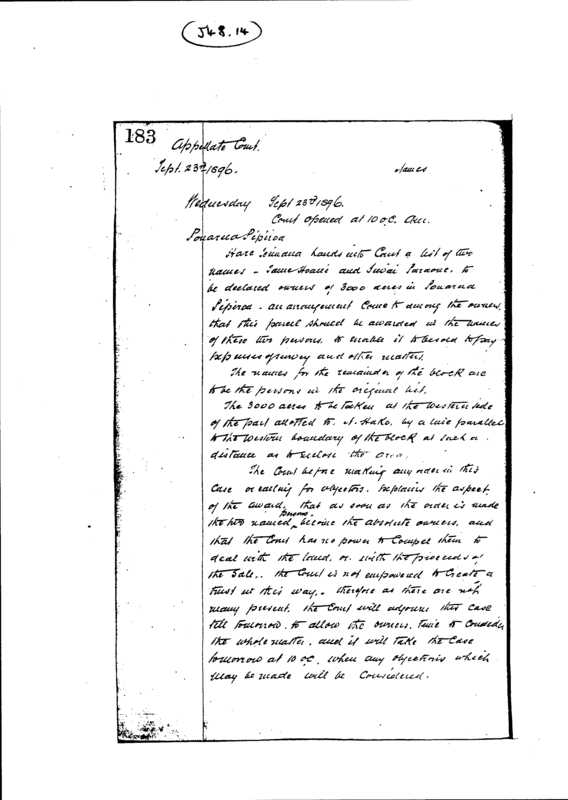 J48.14
183
Appellate Court.
Sept. 23rd 1896.
names
Wednesday Sept 23rd 1896.
Court opened at 10 oC. am.
Hare hands into Court a list of two
names - and to
be declared owners of 3000 acres in
- an arrangement Come to among the owners,
that this parcel should be awarded in the names
of these two persons, to enable it to be sold to pay
Expenses of survey and other matters.
The names for the remainder of the block are
to be the persons in the original list.
The 3000 acres to be taken at the western side
of the part allotted to Hako. by a line parallel
to the western boundary of the block at such a
distance as to enclose the area.
The Court before making any order in this
Case or calling for objectors. Explains the aspect
of the award, that as soon as the order is made
persons
the two named, become the absolute owners, and
that the Court has no power to Compel them to
deal with the land. or with the proceeds of
the Sale.. the Court is not empowered to Create a
trust in this way.. therefore as there are not
many present. the Court will adjourn this case
till tomorrow. to allow the owners. time to consider
the whole matter. and it will take the Case
tomorrow at 10 oC. when any objections which
may be made will be Considered.